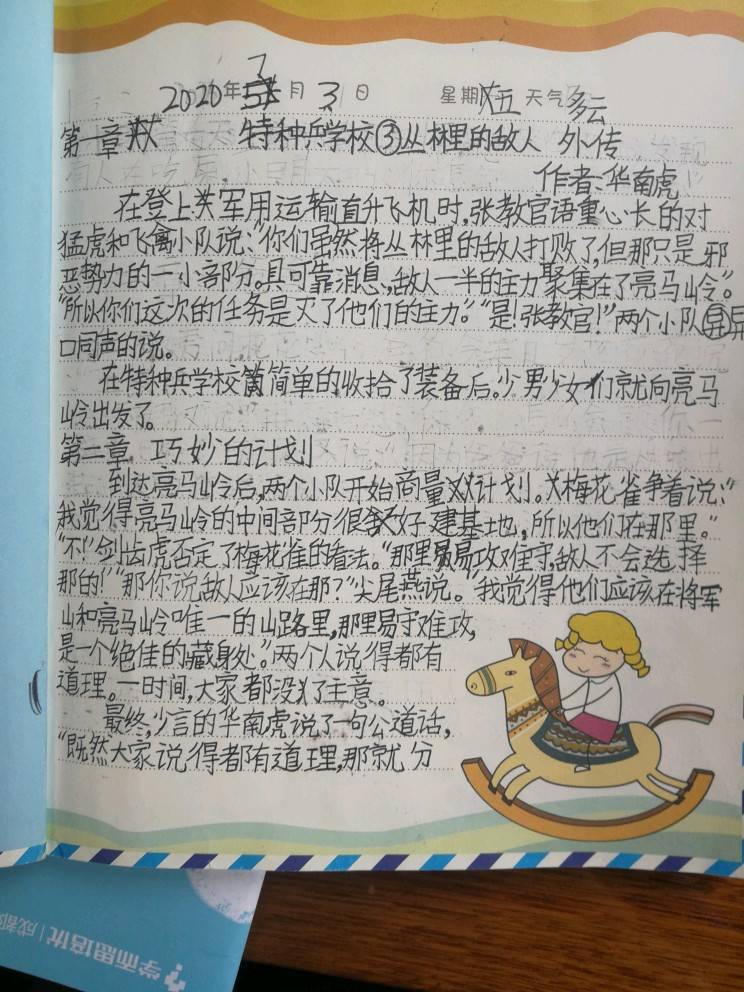 2020年7月3日 星期五 天气多云
第一章 特种兵学校③丛林里的敌人 外传
作者:华南虎
在登上军用运输直升飞机时,张教官语重心长的对
猛虎和飞禽小队说:“你们虽然将丛林里的敌人打败了,但那只是邪
恶势力的一小部分。具可靠消息,敌人一半的主力聚集在了亮马岭。”
“所以你们这次的任务是灭了他们的主力。”“是!张教官!”两个小队异
口同声的说。
在特种兵学校简单的收拾了装备后。少男少女们就向亮马
岭出发了。
第二章 巧妙的计划
到达亮马岭后,两个小队开始商量计划。梅花雀争着说:“
我觉得亮马岭的中间部分很好建基地,所以他们在那里。”
“不!”剑齿虎否定了梅花雀的看法。“那里易攻难守,敌人不会选择
那的!”“那你说敌人应该在那?”尖尾燕说。“我觉得他们应该在将军
山和亮马岭唯一的山路里,那里易守难攻,
是一个绝佳的藏身处。”两个人说得都有
道理。一时间,大家都没了主意。
最终,少言的华南虎说了一句公道话,
“既然大家说得都有道理,那就分
学而思培优|成都